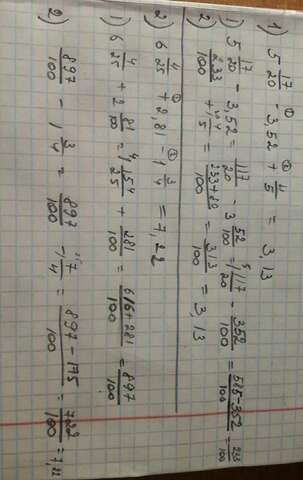 1) 5 17/20 - 3,52 + 4/5 = 3,13
1) 5 17/20 - 3,52 = 117/20 - 3 52/100 = 117/20 - 352/100 = 585-352/100 = 233/100
2) 233/100 + 4/5 = 233+80/100 = 313/100 = 3,13
2) 6 4/25 + 2,81 - 1 3/4 = 7,22
1) 6 4/25 + 2 81/100 = 154/25 + 281/100 = 616+281/100 = 897/100
2) 897/100 - 1 3/4 = 897/100 - 7/4 = 897-175/100 = 722/100 = 7,22